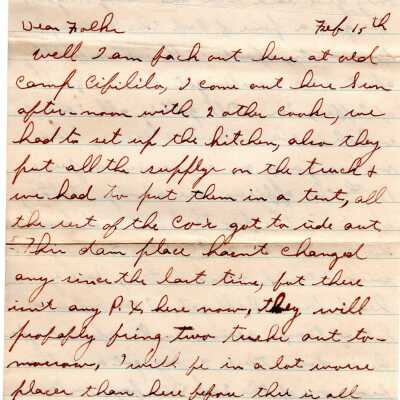 Dear Folks Feb 15th
Well I am back out here at old
camp I come out here Sun
after-noon with 2 other cooks, we
had to set up the kitchen, also they
put all the supplys on the truck &
we had to put them in a tent, all
the rest of the Co's got to ride out,
This dam place hasn't changed
any since the last time, but there
isn't any P.X. here now, they will
probably bring two trucks out to-
morrow, I will be in a lot worse
places than here before this is all